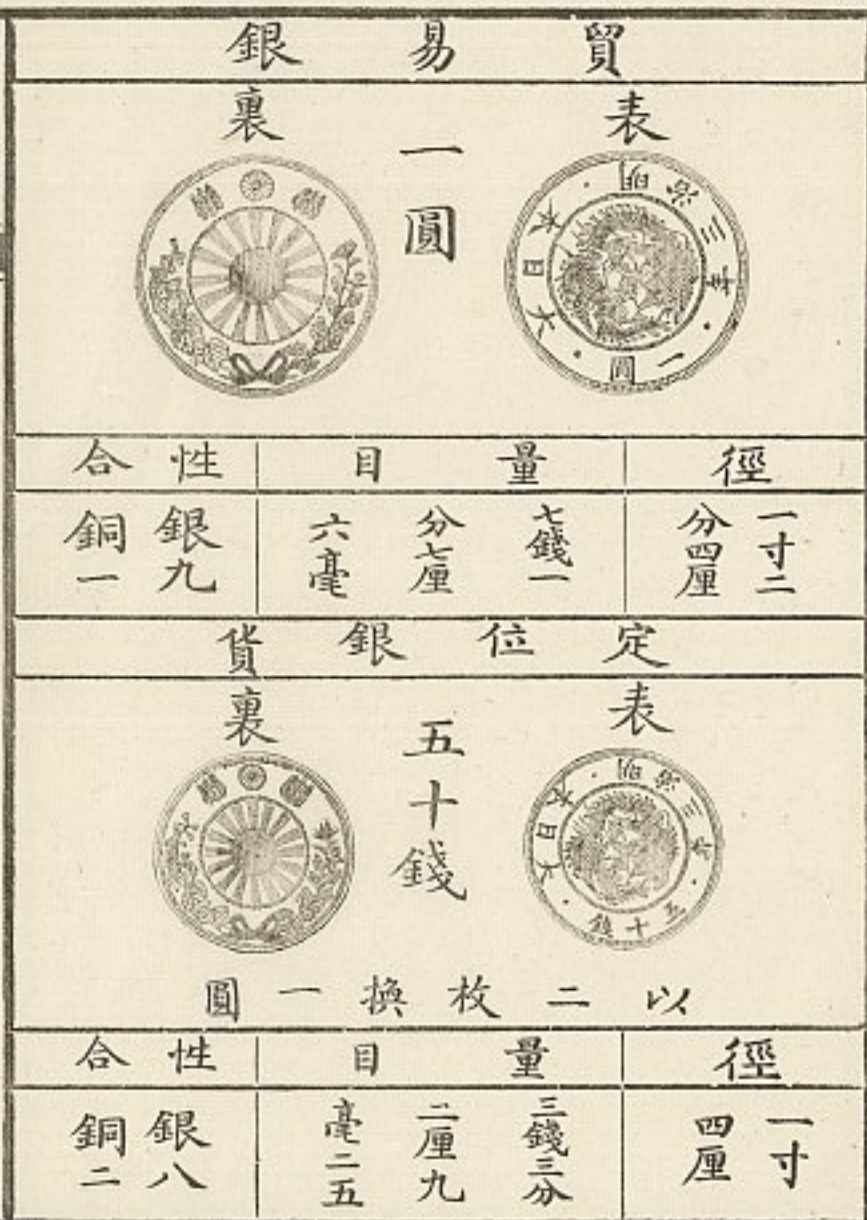 貿易銀
表
一圓
裏
明治三年・一圓・大日本・
徑
量目
性合
一寸二
分四厘
七錢一
分七厘
六毫
銀九
銅一
定位銀貨
表
五十錢
裏
明治三年・五十錢・大日本・
以二枚換一圓
徑
量目
性合
一寸
四厘
三錢三分
二厘九
毫二五
銀八
銅二